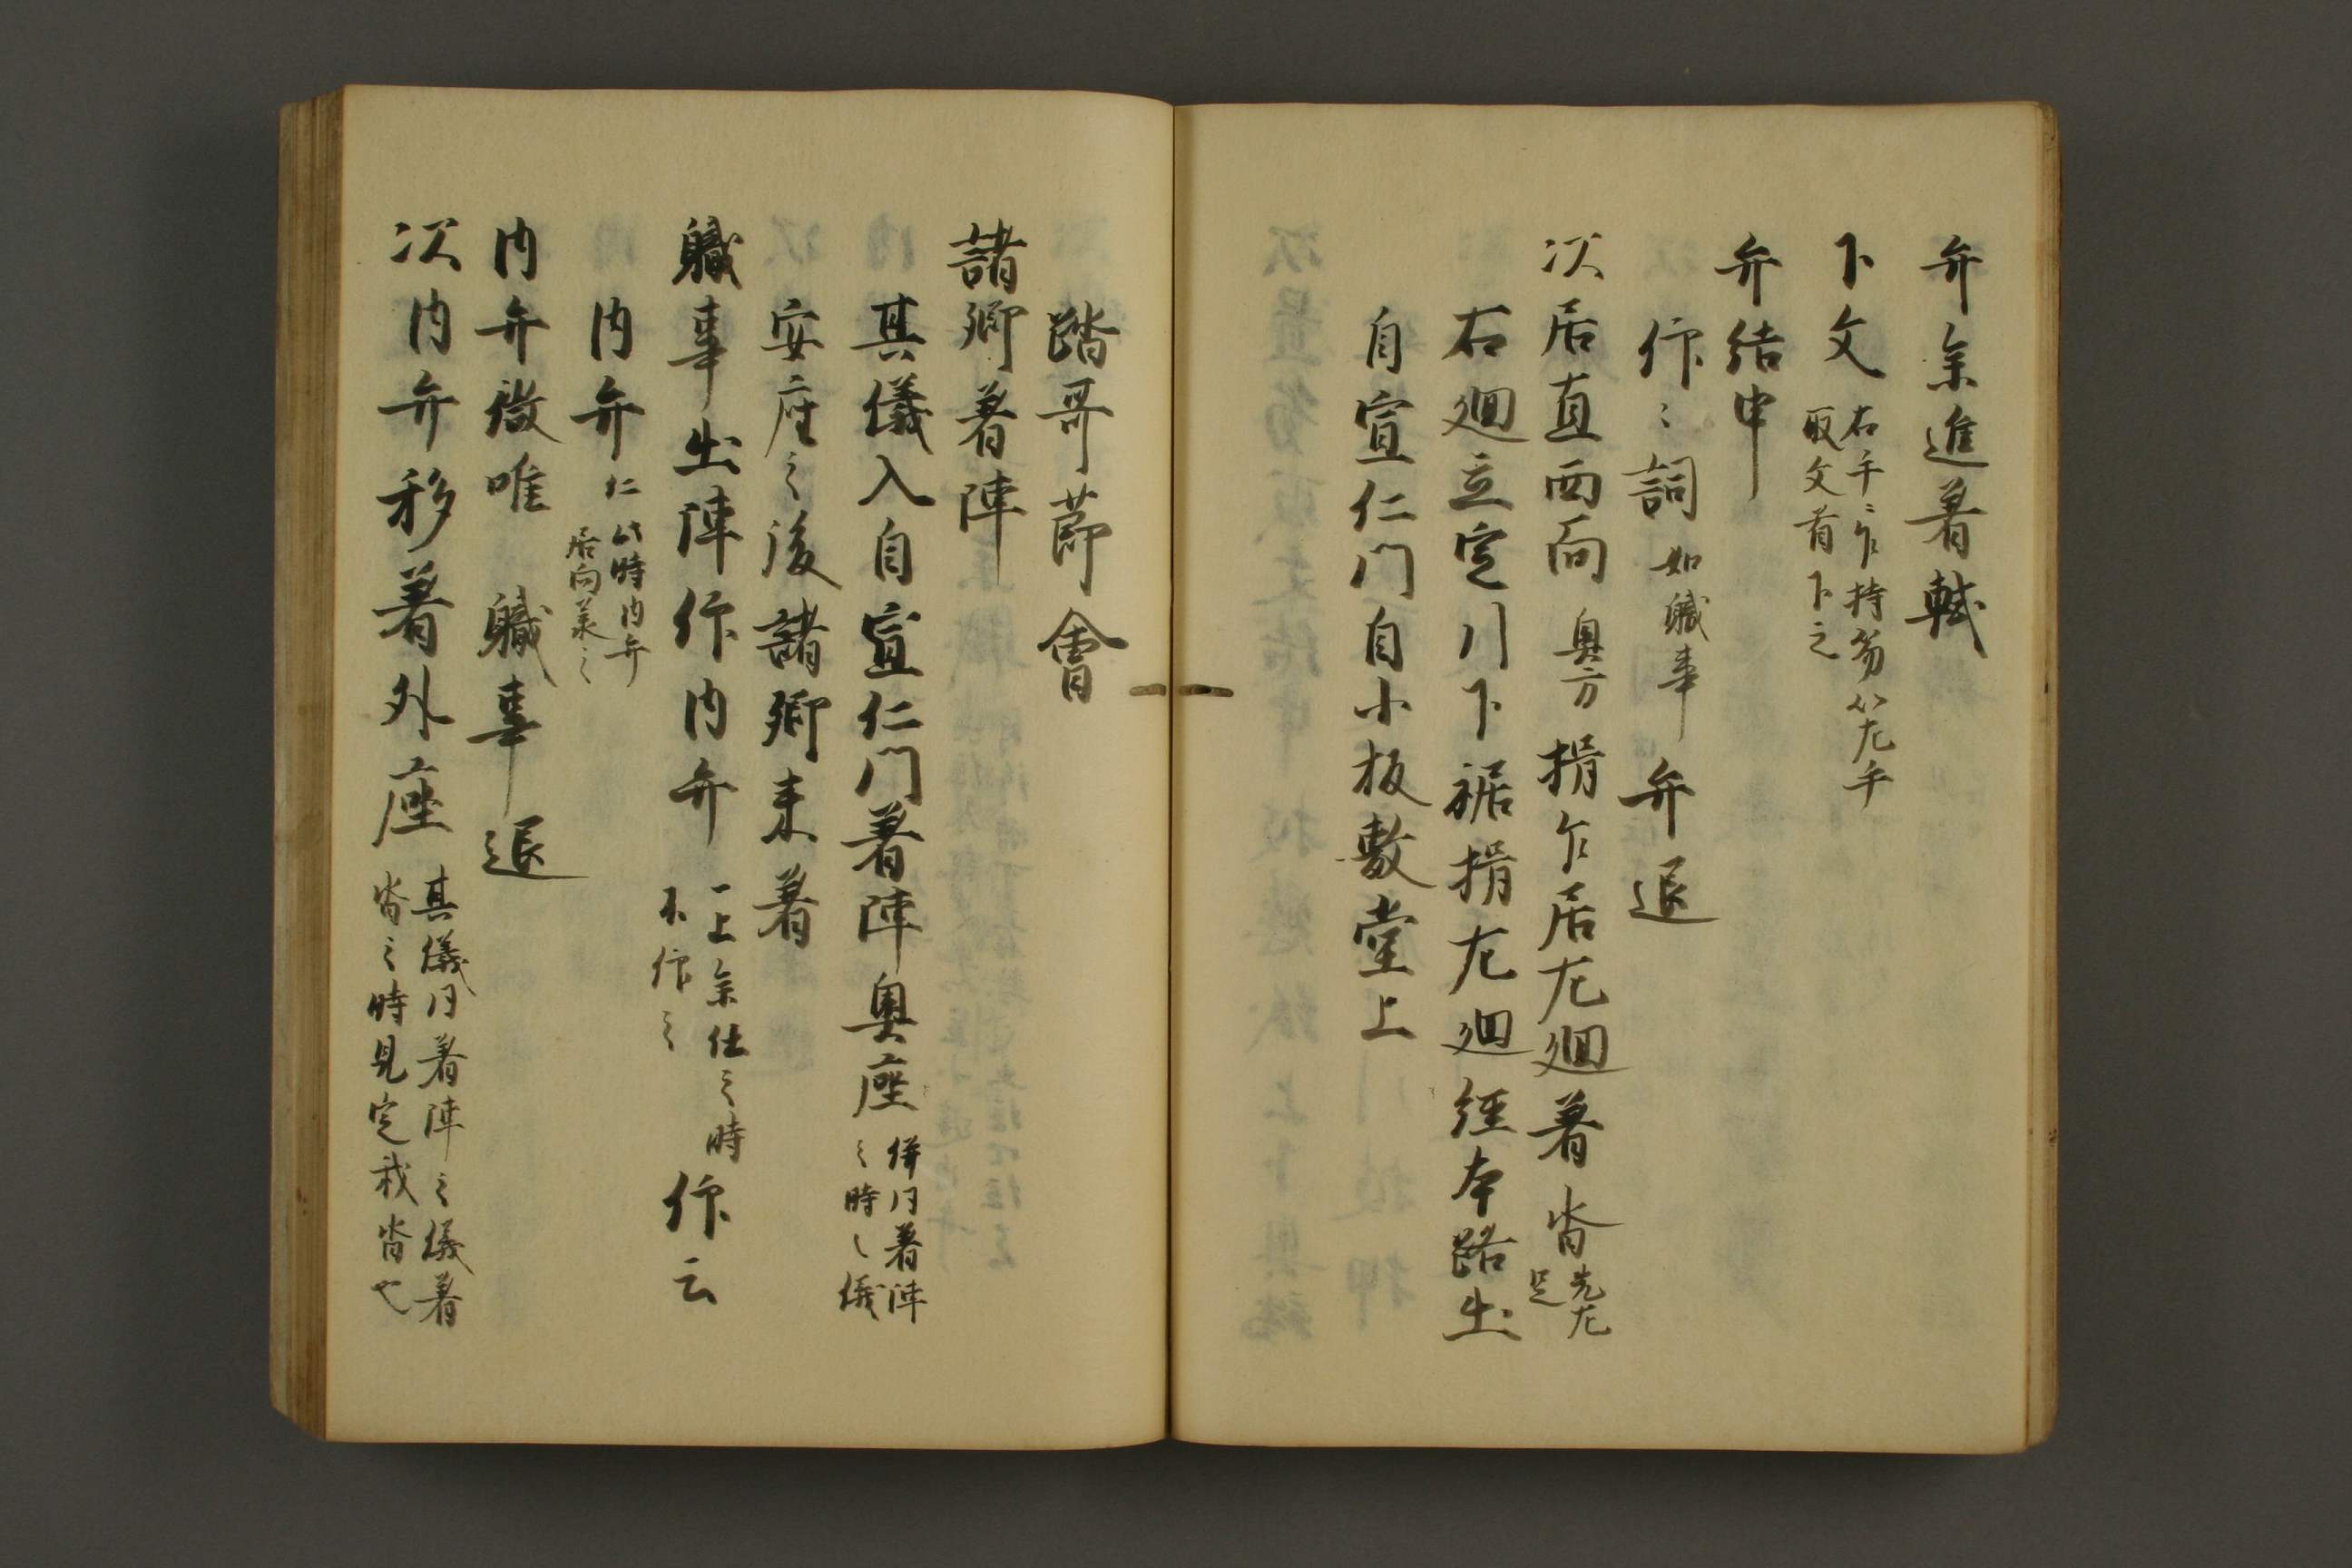 弁参進着軾
下文 右手ニ乍持笏以左手
取文首下之
弁結申
仰々詞 如職事 弁退
次居直西向 奥方 揖乍居左廻着沓 先左
足
右廻立定引下裾揖左廻経本路出
自宣仁門自小板敷堂上
踏哥節會
諸卿着陣
其儀入自宣仁門着陣奥座 併同着陣
之時之儀
安座之後諸卿来着
職事出陣仰内弁 一上参仕之時
不仰之 仰云
内弁仁 此時内弁
居向美之
内弁微唯 職事退
次内弁移着外座 其儀同着陣之儀着
沓之時見定我沓也